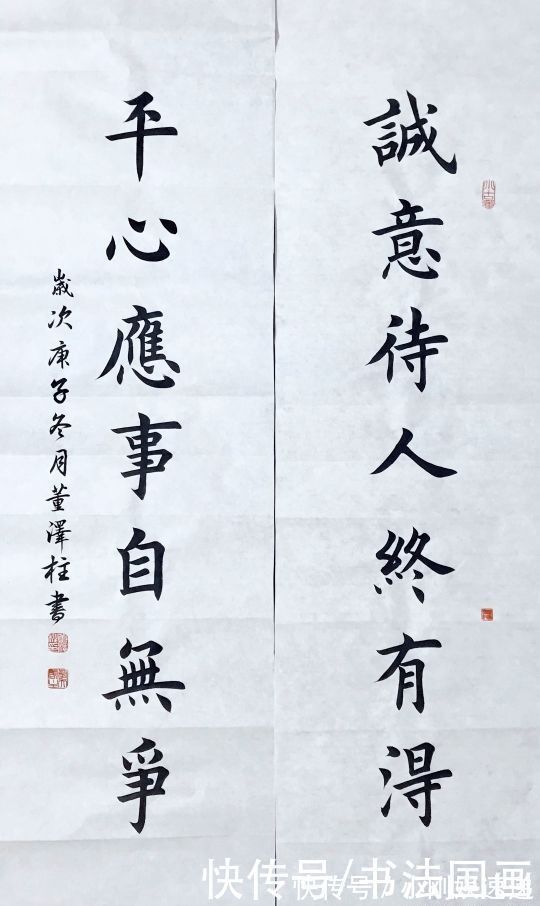 誠意待人終有淂
平心應事自無爭
歲次庚子冬月董澤柱書
快传号/书法国画